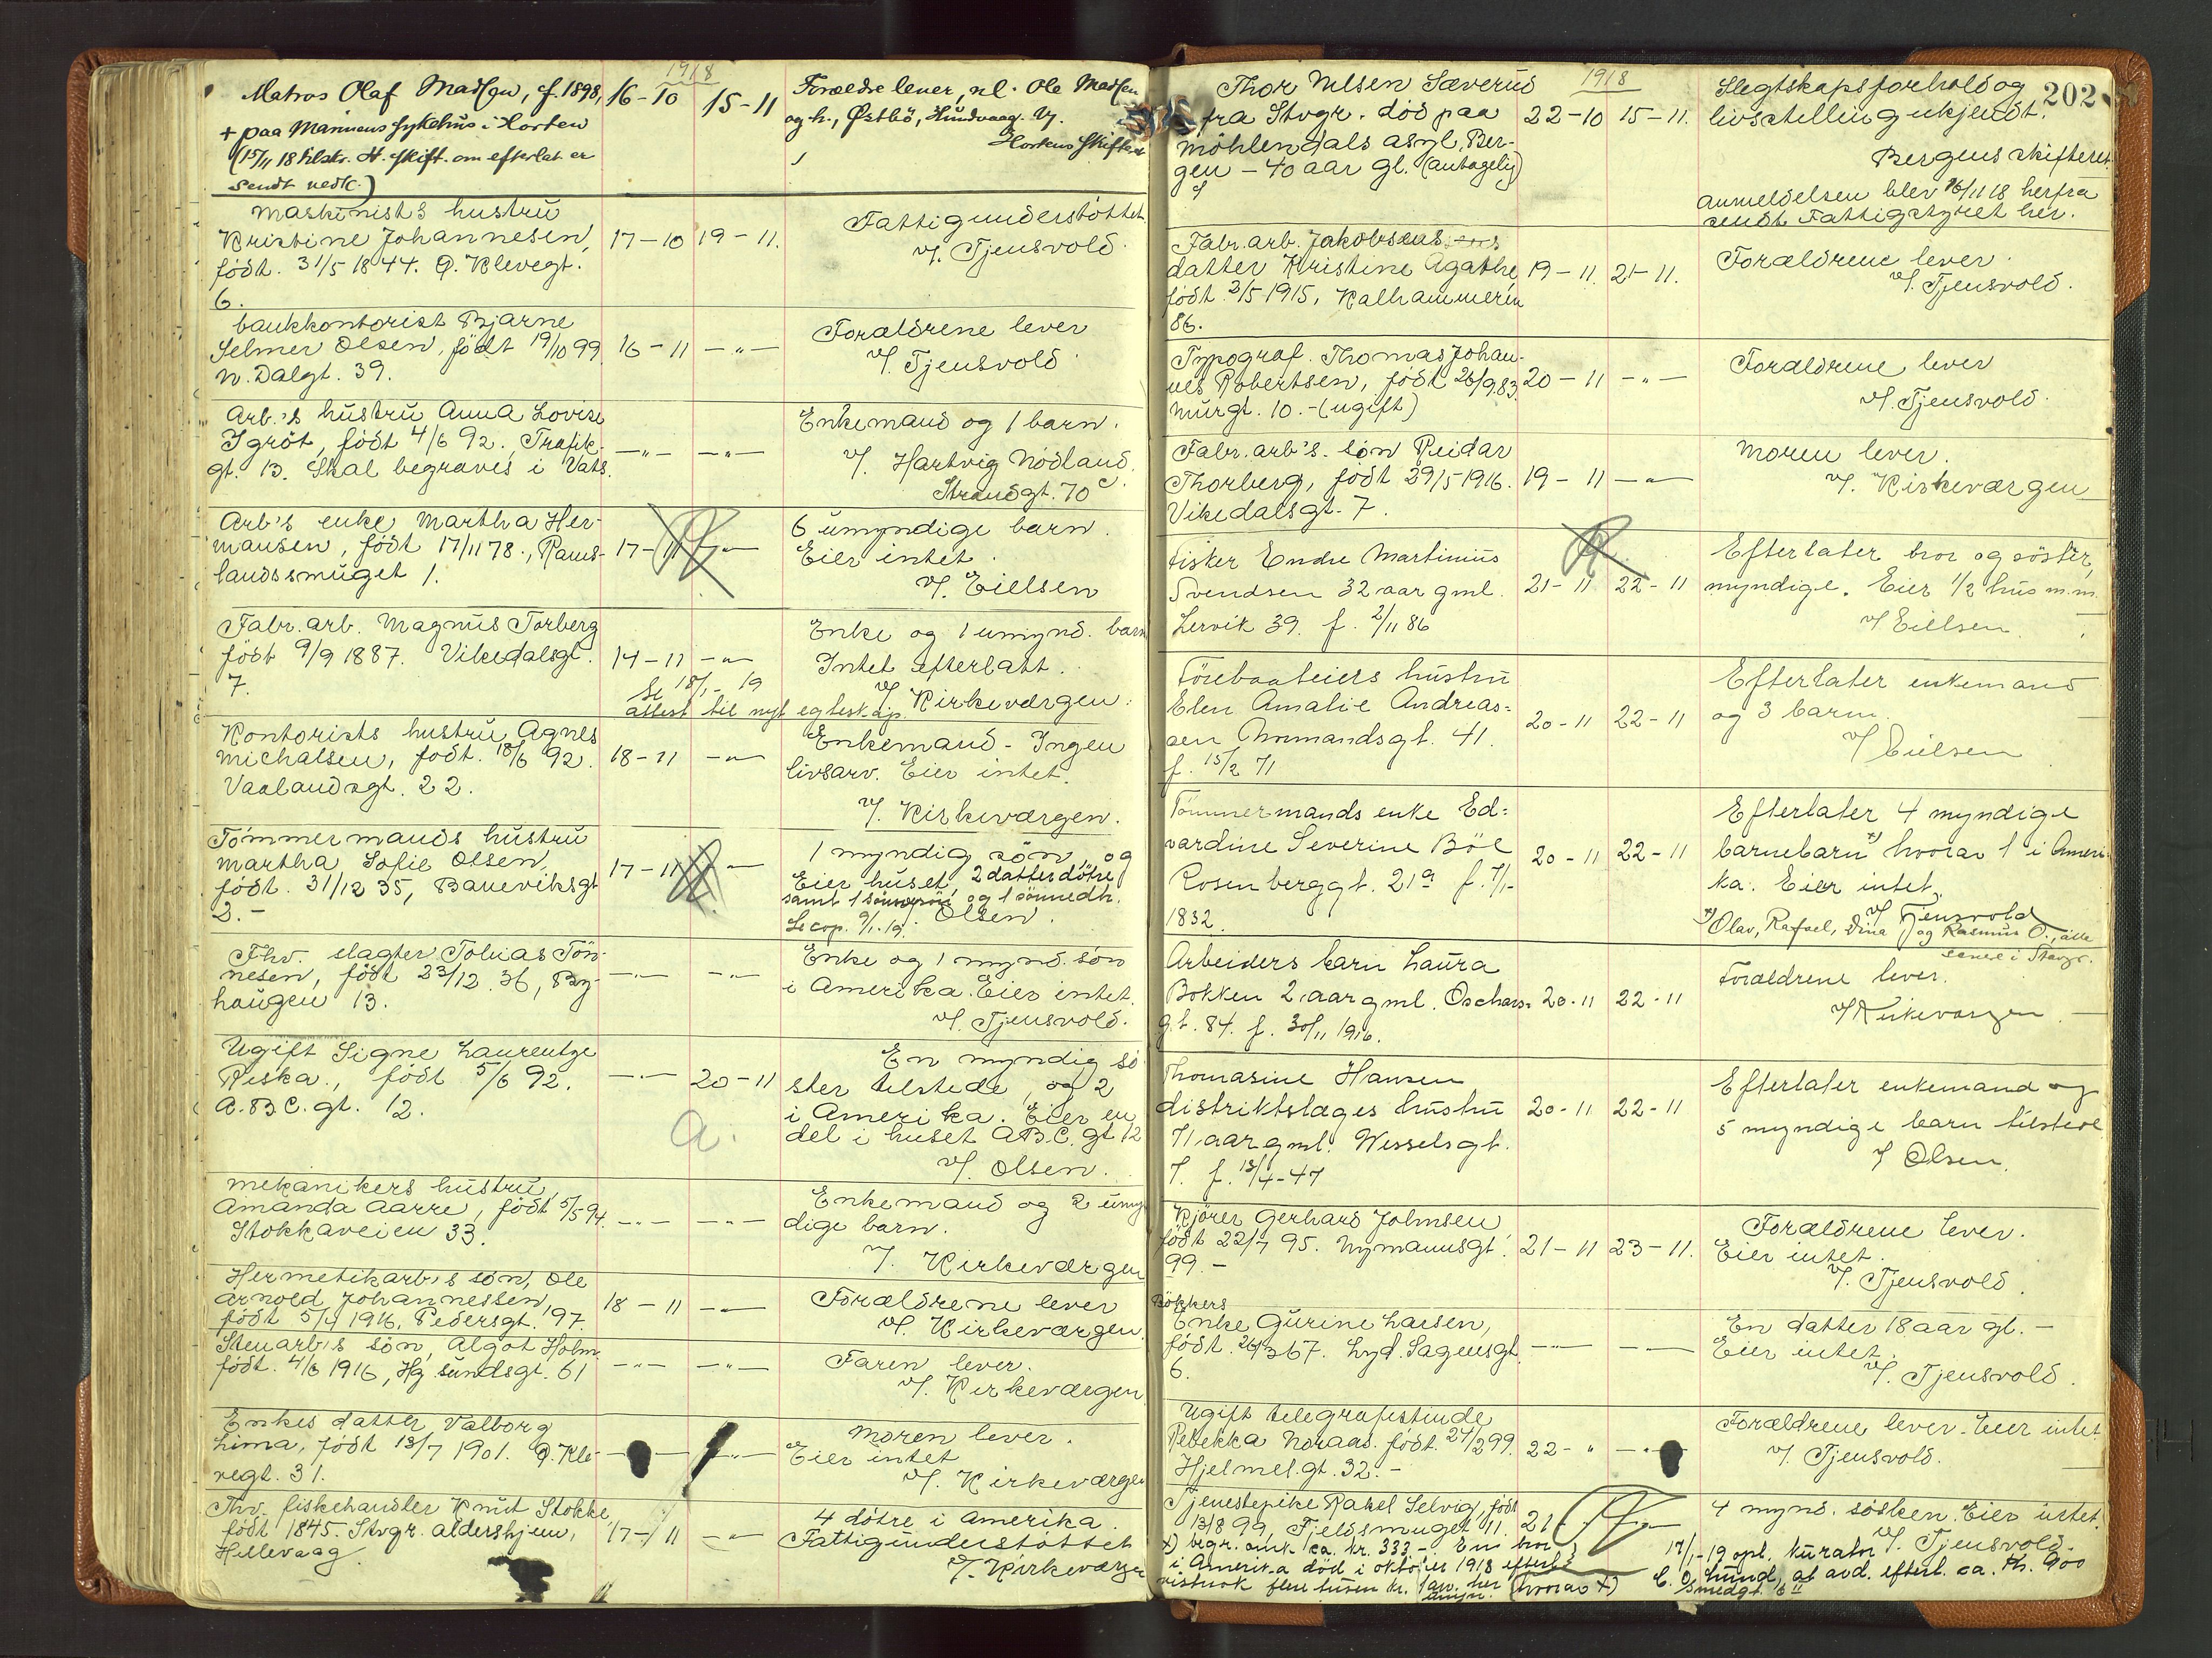 1918
Matros Olaf Madsen, f. 1898, 16-10 15-11 Forældre lever, nl. Ole Madsen
+ paa Marinens sykehus i Horten og h., Østbö, Hundvaag. v/.
(15/11 18 tilskr. H. skift. om efterlat er Hortens Skifteret
sendt nedk.)
Maskinists hustru Fattigunderstöttet
Kristine Johannesen, 17-10 19-11. v/. Tjensvold.
födt. 31/5 1844. Ø. Klevegt.
6.
bankkontorist Bjarne Forældrene lever
Selmer Olsen, födt 19/10 99 16-11 -"- v/. Tjensvold
N. Dalgt. 39.
Arb.'s hustru Anna Lovise Enkemand og 1 barn.
Igröt, födt 4/6 92, Trafik- -"- -"- v/. Hartvig Nödland,
gt. 13. Skal begraves i Vats. Strandgt. 70 c.
Arb's enke Martha Her- 6 umyndige barn.
mansen, födt 17/11 78., Rams- 17-11 -"- Eier intet.
landssmuget 1. v/. Eiellsen
Fabr. arb. Magnus Torberg Enke og 1 umynd. barn
födt 9/9 1887. Vikedalsgt. 14-11 -"- Intet efterlatt.
7. Se 18/1-19 v/ Kirkeværgen.
attest til nyt egteskap.
Kontorists hustru Agnes Enkemand - Ingen
Michalsen, födt. 18/6 92. 18-11 -"- livsarv. Eier intet.
Vaalandsgt. 22. v/. Kirkeværgen.
Tömmermands hustru 1 myndig sön, og
Martha Sofie Olsen, 17-11 -"- Eier huset, 2 datterdötre
födt. 31/12 35, Baneviksgt samt 1 sönnesön og 1 sönnedtr.
2.- Se cop. 9/1-19. Olsen.
Fhv. slagter Tobias Tön- Enke og 1 mynd. sön
nesen, födt 23/12 36, By- -"- -"- i Amerika. Eier intet.
haugen 13. v/. Tjensvold.
Ugift Signe Laurentze En myndig sö-
Riska., födt 5/6 92. -"- 20-11 ster tilstede, og 2
A.B.C. gt. 12. i Amerika. Eier en
a. del i huset A.B.C. gt 12
v/. Olsen.
Mekanikers hustru, Enkemand og 2 umyn-
Amanda Aarre, födt 5/5 94. -"- -"- dige barn.
Stokkaveien 33. v/. Kirkeværgen
Hermetikarb's sön, Ole
Arnold Johannessen, 18-11 -"- Forældrene lever
födt 5/4 1916, Pedersgt. 97. v/. Kirkeværgen.
Stenarb's sön, Algot Holm Faren lever.
födt. 4/6 1916, Hg.sundsgt. 61 -"- -"- v/. Kirkeværgen
Enkes datter Valborg Moren lever.
Lima, födt 13/7 1901. Ø. Kle- -"- -"- Eier intet
vegt. 31. v/. Kirkeværgen
Fhv. fiskehandler Knut Stokke 4 dötre i Amerika.
födt 1845. Stvgr. aldershjem, 17-11 -"- Fattigunderstöttet
Hillevaag. v/. Kirkeværgen
202
1918
Thor Nilsen Sæverud Slegtskapsforhold og
fra Stvgr. död paa 22-10 15-11. livsstilling ukjendt.
Möhlendals asyl, Ber- Bergens skifteret.
gen - 40 aar gl. (antagelig) anmeldelsen blev 16/11 18 herfra
sendt Fattigstyret her.
Fabr. arb. Jakobsens
datter Kristine Agathe, 19-11. 21-11. Forældrene lever.
födt 2/5 1915, Kalhammeren v/. Tjensvold.
86.
Typograf. Thomas Johan- Forældrene lever
nes Robertsen, födt 26/9 83. 20-11 -"- v/. Tjensvold.
Murgt. 10. - (ugift)
Fabr. arb's. sön Reidar Moren lever.
Thorberg, födt 29/5 1916. 19-11 -"- v/. Kirkeværgen
Vikedalsgt. 7.
Fisker Endre Martinius Efterlater bror og söster,
Svendsen 32 aar gml. 21-11 22-11 myndige. Eier 1/2 hus m.m.
Lervik 39. f. 2/11 86 v/ Eiellsen.
Föreboateiers hustru Efterlater enkemand
Elen Amalie Andreas= 20-11 22-11 og 3 barn.
sen Normandsgt. 41. v/ Eielsen
f. 15/2 71
Tömmermands enke Ed= Efterlater 4 myndige
vardine Severine Böe 20-11 22-11 barnebarn x) hvorav 1 i Ameri-
Rosenberggt. 21a f. 7/1- ka. Eier intet.
1832. v/ Tjensvold
x) Olav, Rafael, Dina og Rasmus O., alle
senere i Stavgr.
Arbeiders barn Laura Forældrene lever.
Bokken 2 aar gml. Oschars= 20-11 22-11 v/ Kirkeværgen
gt. 84. f. 30/11 1916.
Thomasine Hansen Efterlater enkemand og
distriktslæges hustru 20-11 22-11 5 myndige barn tilstede
71 aar gml. Wesselsgt. v/ Olsen.
7. f. 13/4-47
Kjörer Gerhard Johnsen Forældrene lever.
födt 22/7 95. Nymannsgt. 21-11 23-11. Eier intet.
99.- v/. Tjensvold.
Bökkers
Enke Gurine Larsen, En datter 18 aar gl. -
födt. 26/3 67. Lyd. Sagensgt. -"- -"- Eier intet.
6. v/. Tjensvold.
Ugift telegrafistinde Forældrene lever. Eier intet.
Rebekka Noraas. födt. 27/2 99. 22-" -"- v/. Tjensvold.
Hjelmel.gt. 32.-
Tjenestepike Rakel Selvig, födt 4 mynd. sösken. Eier intet.
13/8 99, Fjeldsmuget 11. 21- -"- v/. Tjensvold.
x) begr. omk. ca. kr. 333.- En bror 17/1-19 opl. kurator
i Amerika död i oktober 1918 efterl. C. O. Lund, at avd. efterl. ca. kr. 900
vistnok flere tusen kr. 1 arv. her (hvorav x) Smedgt. 6 II